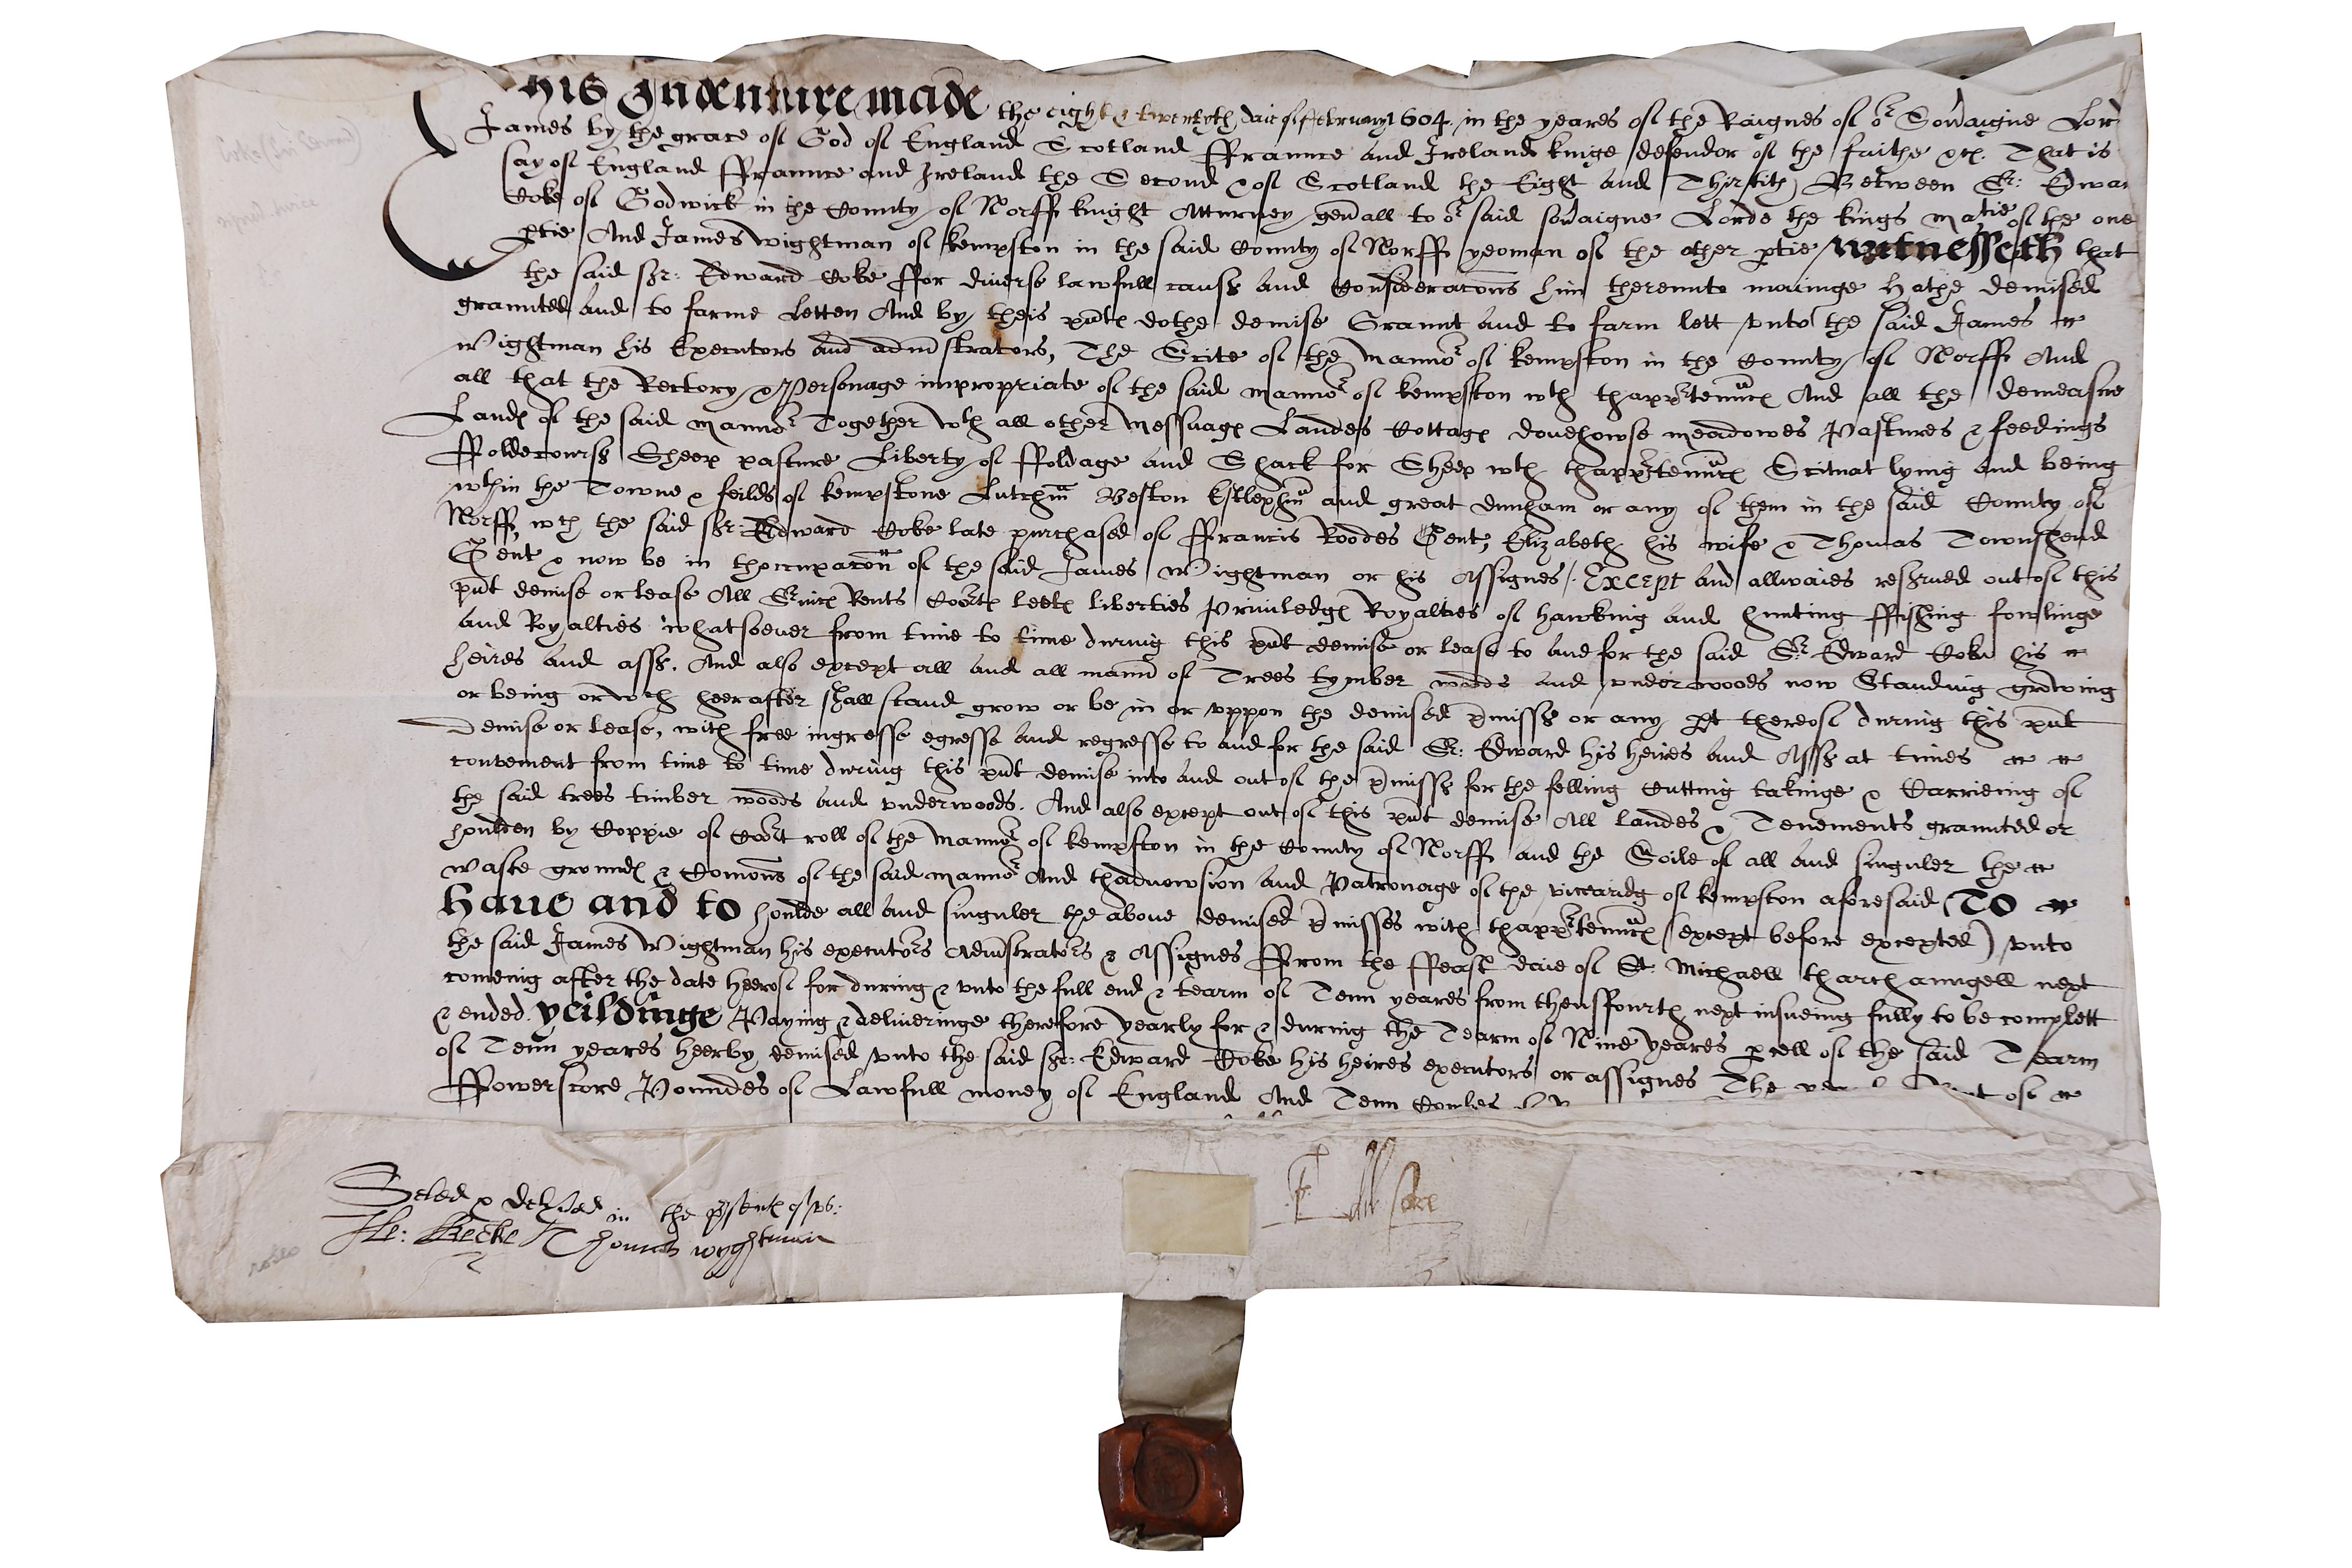 This Indenture made the eight & twentyth daie of february 1604. in the yeares of the Raignes of oʳ Sovaigne Lord
James by the grace of God of England Scotland ffraunce and Ireland kinge defendor of the faithe &c. That is
say of England ffraunce and Ireland the Second & of Scotland the Eight and Thirtith Between Sr: Edwar
Coke of Godwick in the County of Norff knight Atturney genall to oʳ said sovaigne Lorde the kings Matie of the one
ptie And James Wightman of kempston in the said County of Norff yeoman of the other ptie Witnesseth that
the said Sr: Edward Coke ffor diverse lawfull causs and Consideracons him thereunto moving Hathe demised
graunted and to farme Letten And by theis pnts dothe demise Graunt and to farm lett vnto the said James
Wightman his Executors and admstrators, The Scite of the Mannoʳ of kempston in the County of Norff And
all that the Rectory & Personage impropriate of the said Mannoʳ of kempston wth thappʳtennces And all the demeasne
Landes of the said Mannoʳ Together wth all other Messuages Landes Cottages dovehowse meadowes Pastures & feedings
ffoldcourss Sheep pasture Liberty of ffoldage and Shack for Sheep wth thappʳtennces Scituat lying and being
wthin the Towne & feilds of kempstone Lutchm Beston Estlexhm and great dunham or any of them in the said County of
Norff wch the said Sr: Edward Coke late purchased of ffrancis Roodes Gent, Elizabeth his wife & Thomas Townshend
Gent & now be in thoccupacon of the said James Wightman or his Assignes / Except and allwaies reserued out of this
pnt demise or lease All Svices Rents Coʳtes leetes liberties Priuiledges Royalties of hawking and hunting ffishing fowlinge
and Royalties whatsoeuer from time to time during this pnt demise or lease to and for the said Sr Edward Coke his
heires and asss. And also except all and all mann of Trees tymber woods and vnderwoods now Standing growing
or being or wch heerafter shall stand grow or be in or vppon the demised pmisss or any pt thereof during this pnt
Demise or lease, with free ingresse egresse and regresse to and for the said Sr: Edward his heires and Asss at times
convenient from time to time during this pnt demise into and out of the pmisss for the felling Cutting takinge & Carrieing of
the said trees timber woods and vnderwoods. And also except out of this pnt demise All landes & Tenements graunted or
houlden by Coppie of Coʳt roll of the Mannoʳ of kempston in the County of Norff and the Soile of all and singuler the
waste groundes & Comons of the said mannoʳ And thadvowsion and Patronage of the viccaridg of kempston aforesaid To
haue and to houlde all and singuler the aboue demised pmisses with thappʳtennces (except before excepted) vnto
the said James Wightman his executoʳs Admstratoʳs & Assignes ffrom the ffeast daie of St. Michaell tharchanngell next
comeing after the date heerof for during & vnto the full end & tearm of Tenn yeares from thensfourth next insueing fully to be complett
& ended. Yeildinge Paying & deliveringe therefore yearly for & during the Tearm of Nine yeares pcell of the said Tearm
of Tenn yeares heerby demised vnto the said Sr: Edward Coke his heires executors or assignes The
ffowerscore Poundes of Lawfull money of England And Tenn
Seled & delived in the psents of vs:
Thomas wyghtman